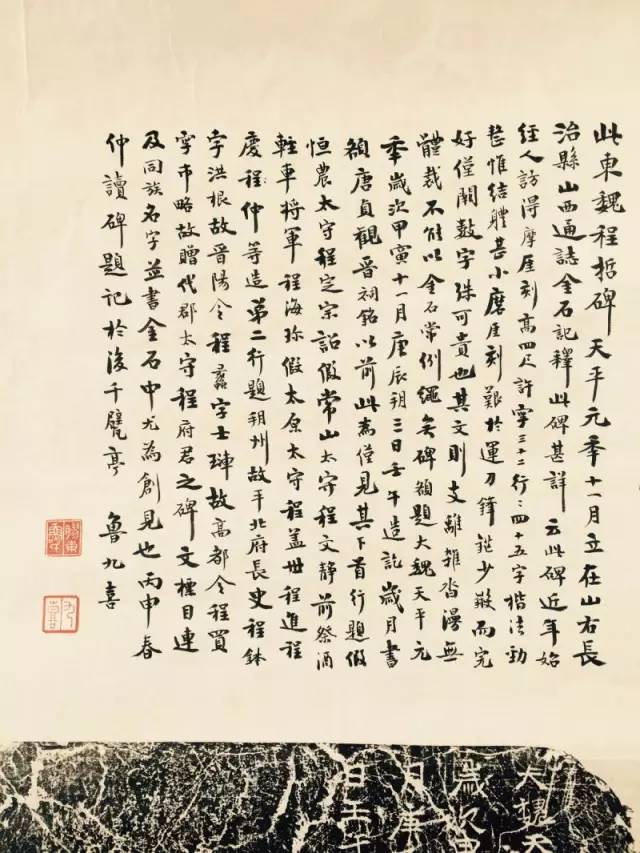 此東魏程哲碑天平元年十一月立在山右長
治縣山西通誌金石記釋此碑甚詳云此碑近年始
經人訪得摩厓刻高四尺許字三十二行三四十五字楷法勁
甚惟結體甚小磨厓刻難於運刀鋒鋩少斂而完
好僅闕數字殊可貴也其文則支離雜沓漫無
體裁不能以金石常例繩矣碑額題大魏天平元
年歲次甲寅十一月庚辰朔三日壬午造訖歲月書
額唐貞觀晉祠銘以前此為僅見其下首行題假
恒農太守程定宗詔假常山太守程文靜前祭酒
輕車將軍程海珍假太原太守程蓋世程進程
慶程仲等造第二行題朔州故平北府長史程鉢
字洪根故晉陽令程蠡字士璉故高都令程買
字市略故贈代郡太守程府君之碑文標目連
及同族名字並書金石中尤為創見也丙申春
仲讀碑題記於後千甓亭 魯九喜
大魏天
歲次甲
月庚
日壬午